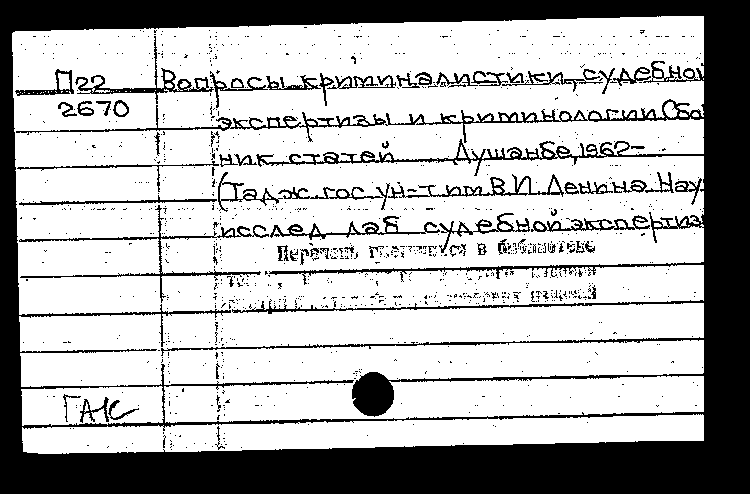 П22 Вопросы криминалистики, судебной
2670 экспертизы и криминологии Сбо
ник статей Душанбе, 1962-
(Тадж. гос. ун-т им В.И. Ленина. Нау
исслед лаб судебной экспертиз
Перечень имеющихся в библиотеке
ГАК